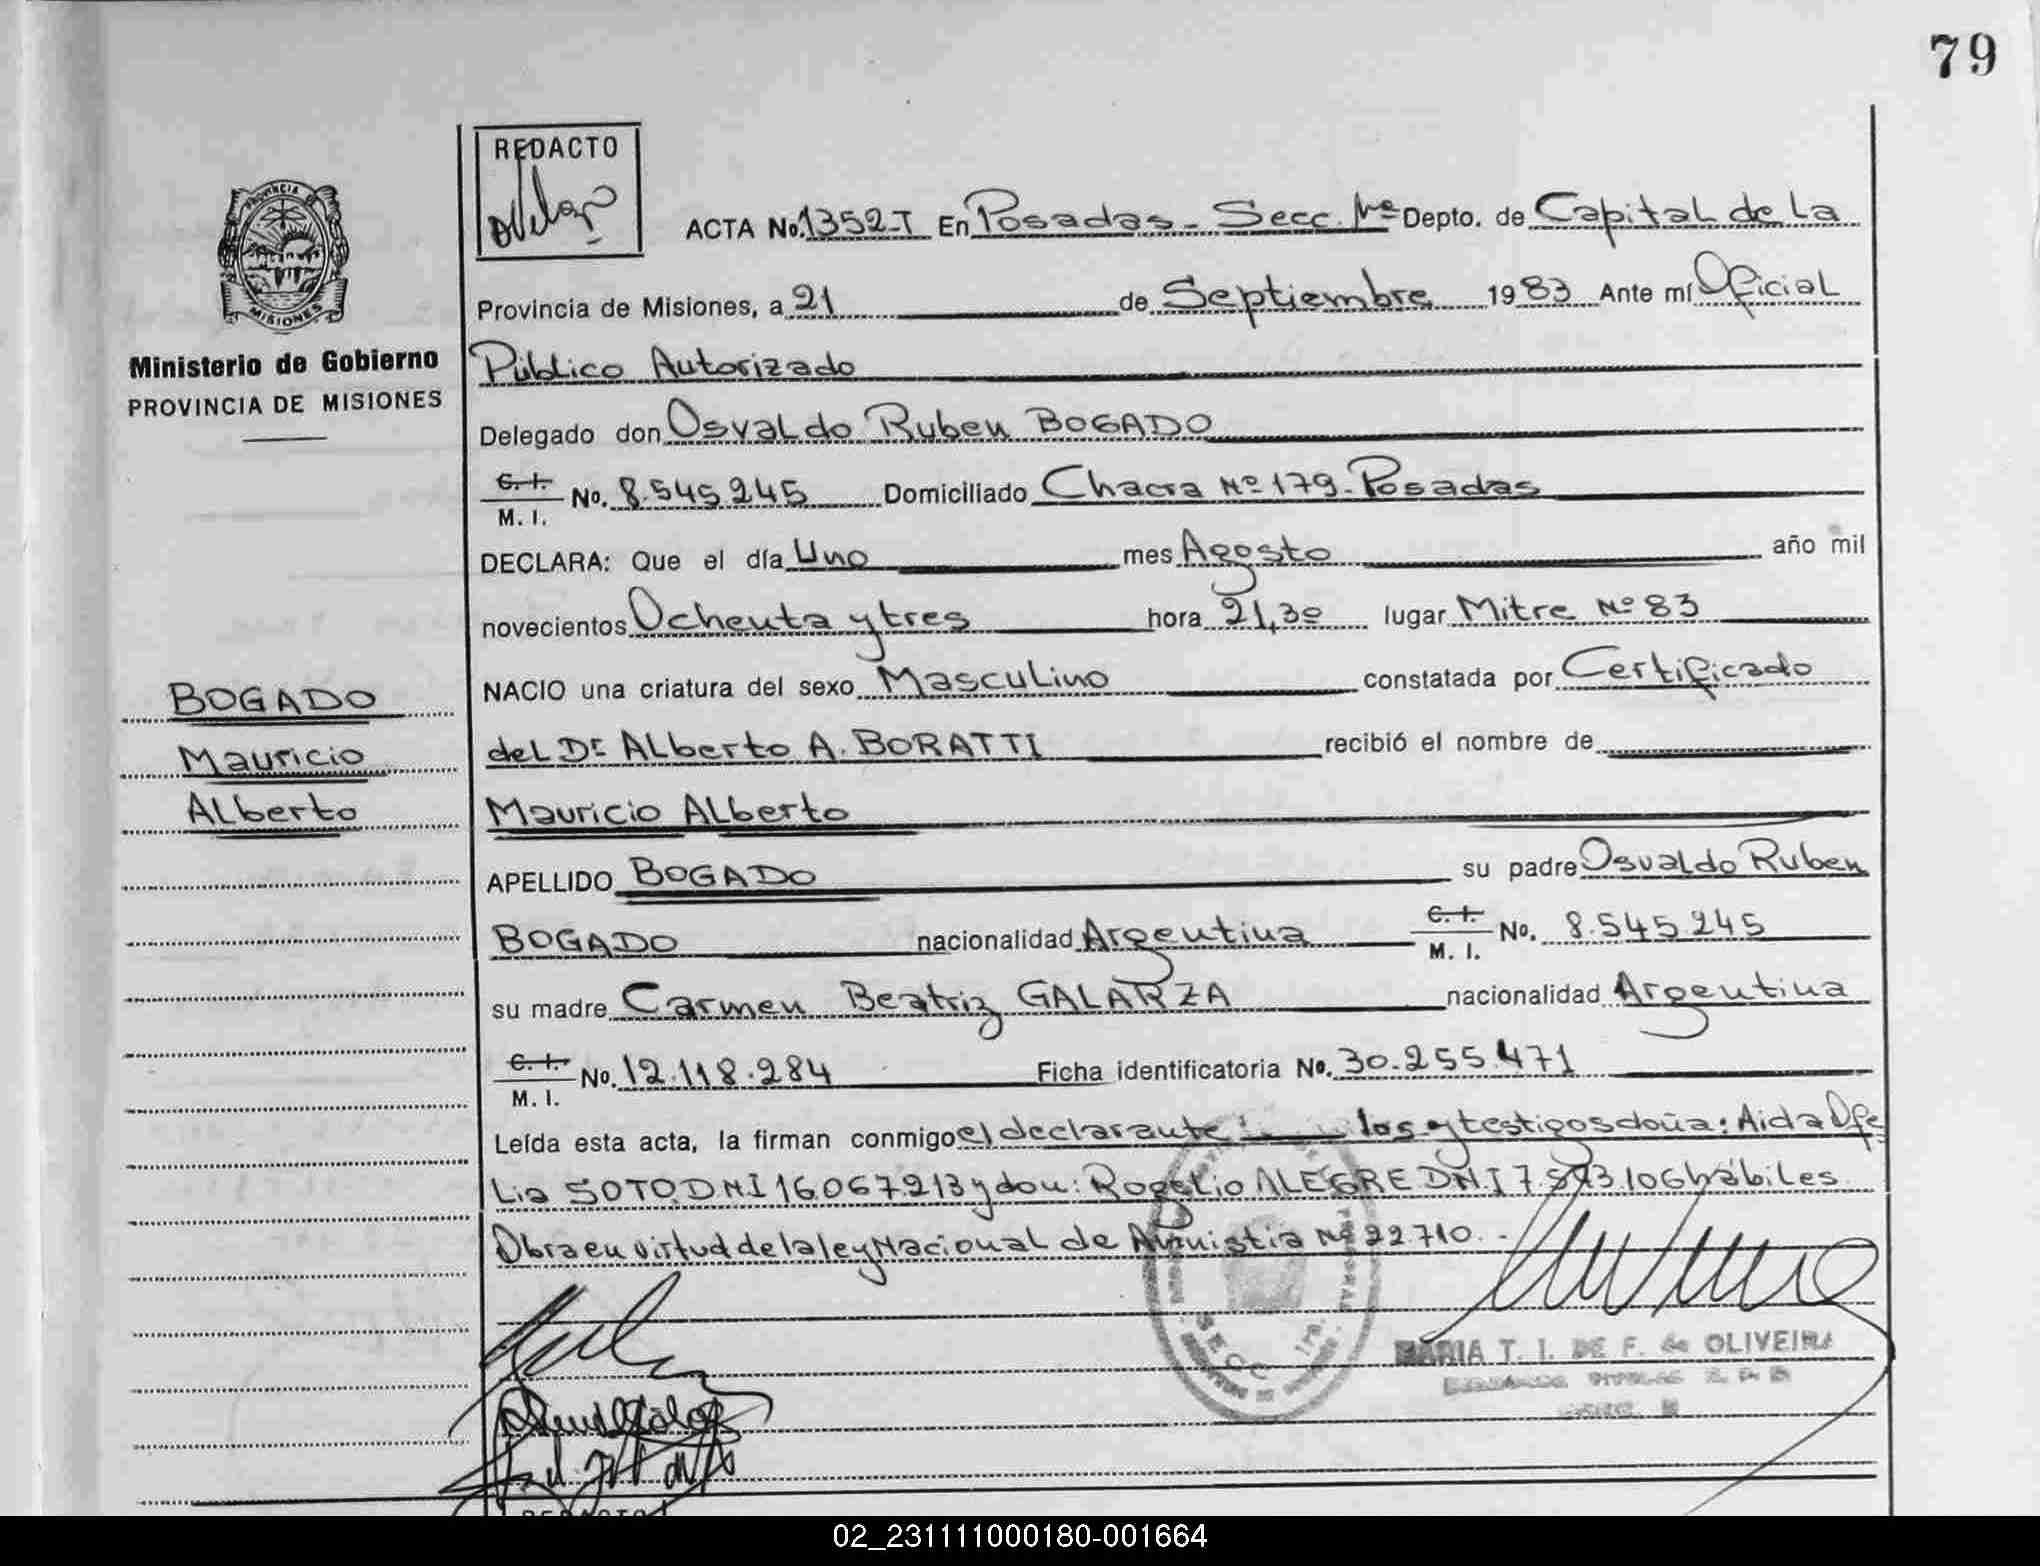 79
REDACTO
PROVINCIA
MISIONES
Ministerio de Gobierno
PROVINCIA DE MISIONES
ACTA No. 1352-T En Posadas - Secc. 1ra Depto. de Capital de La
Provincia de Misiones, a 21 de Septiembre 1983 Ante mí Oficial
Público Autorizado
Delegado don Osvaldo Ruben BOGADO
C. I. M. I. No. 8.545.245 Domiciliado Chacra Nº 179 - Posadas
DECLARA: Que el día Uno mes Agosto año mil
novecientos Ochenta y tres hora 21,30 lugar Mitre Nº 83
NACIO una criatura del sexo Masculino constatada por Certificado
del Dr ALberto A. BORATTI recibió el nombre de
Mauricio ALberto
APELLIDO BOGADO su padre Osvaldo Ruben
BOGADO nacionalidad Argentina C. I. M. I. No. 8.545.245
su madre Carmen Beatriz GALARZA nacionalidad Argentina
C. I. M. I. No. 12.118.284 Ficha identificatoria No. 30.255.471
Leída esta acta, la firman conmigo el declarante los y testigos doña: Aida Ofe
Lia SOTO DNI 16.067.213 y don: Rogelio ALEGRE DNI 7.593.106 hábiles
Obra en virtud de la ley Nacional de Amnistia Nº 22.710.-
BOGADO
Mauricio
ALberto
SECC 1ra.
MARIA T. I. DE F. de OLIVEIRA
REDACTO
02_231111000180-001664